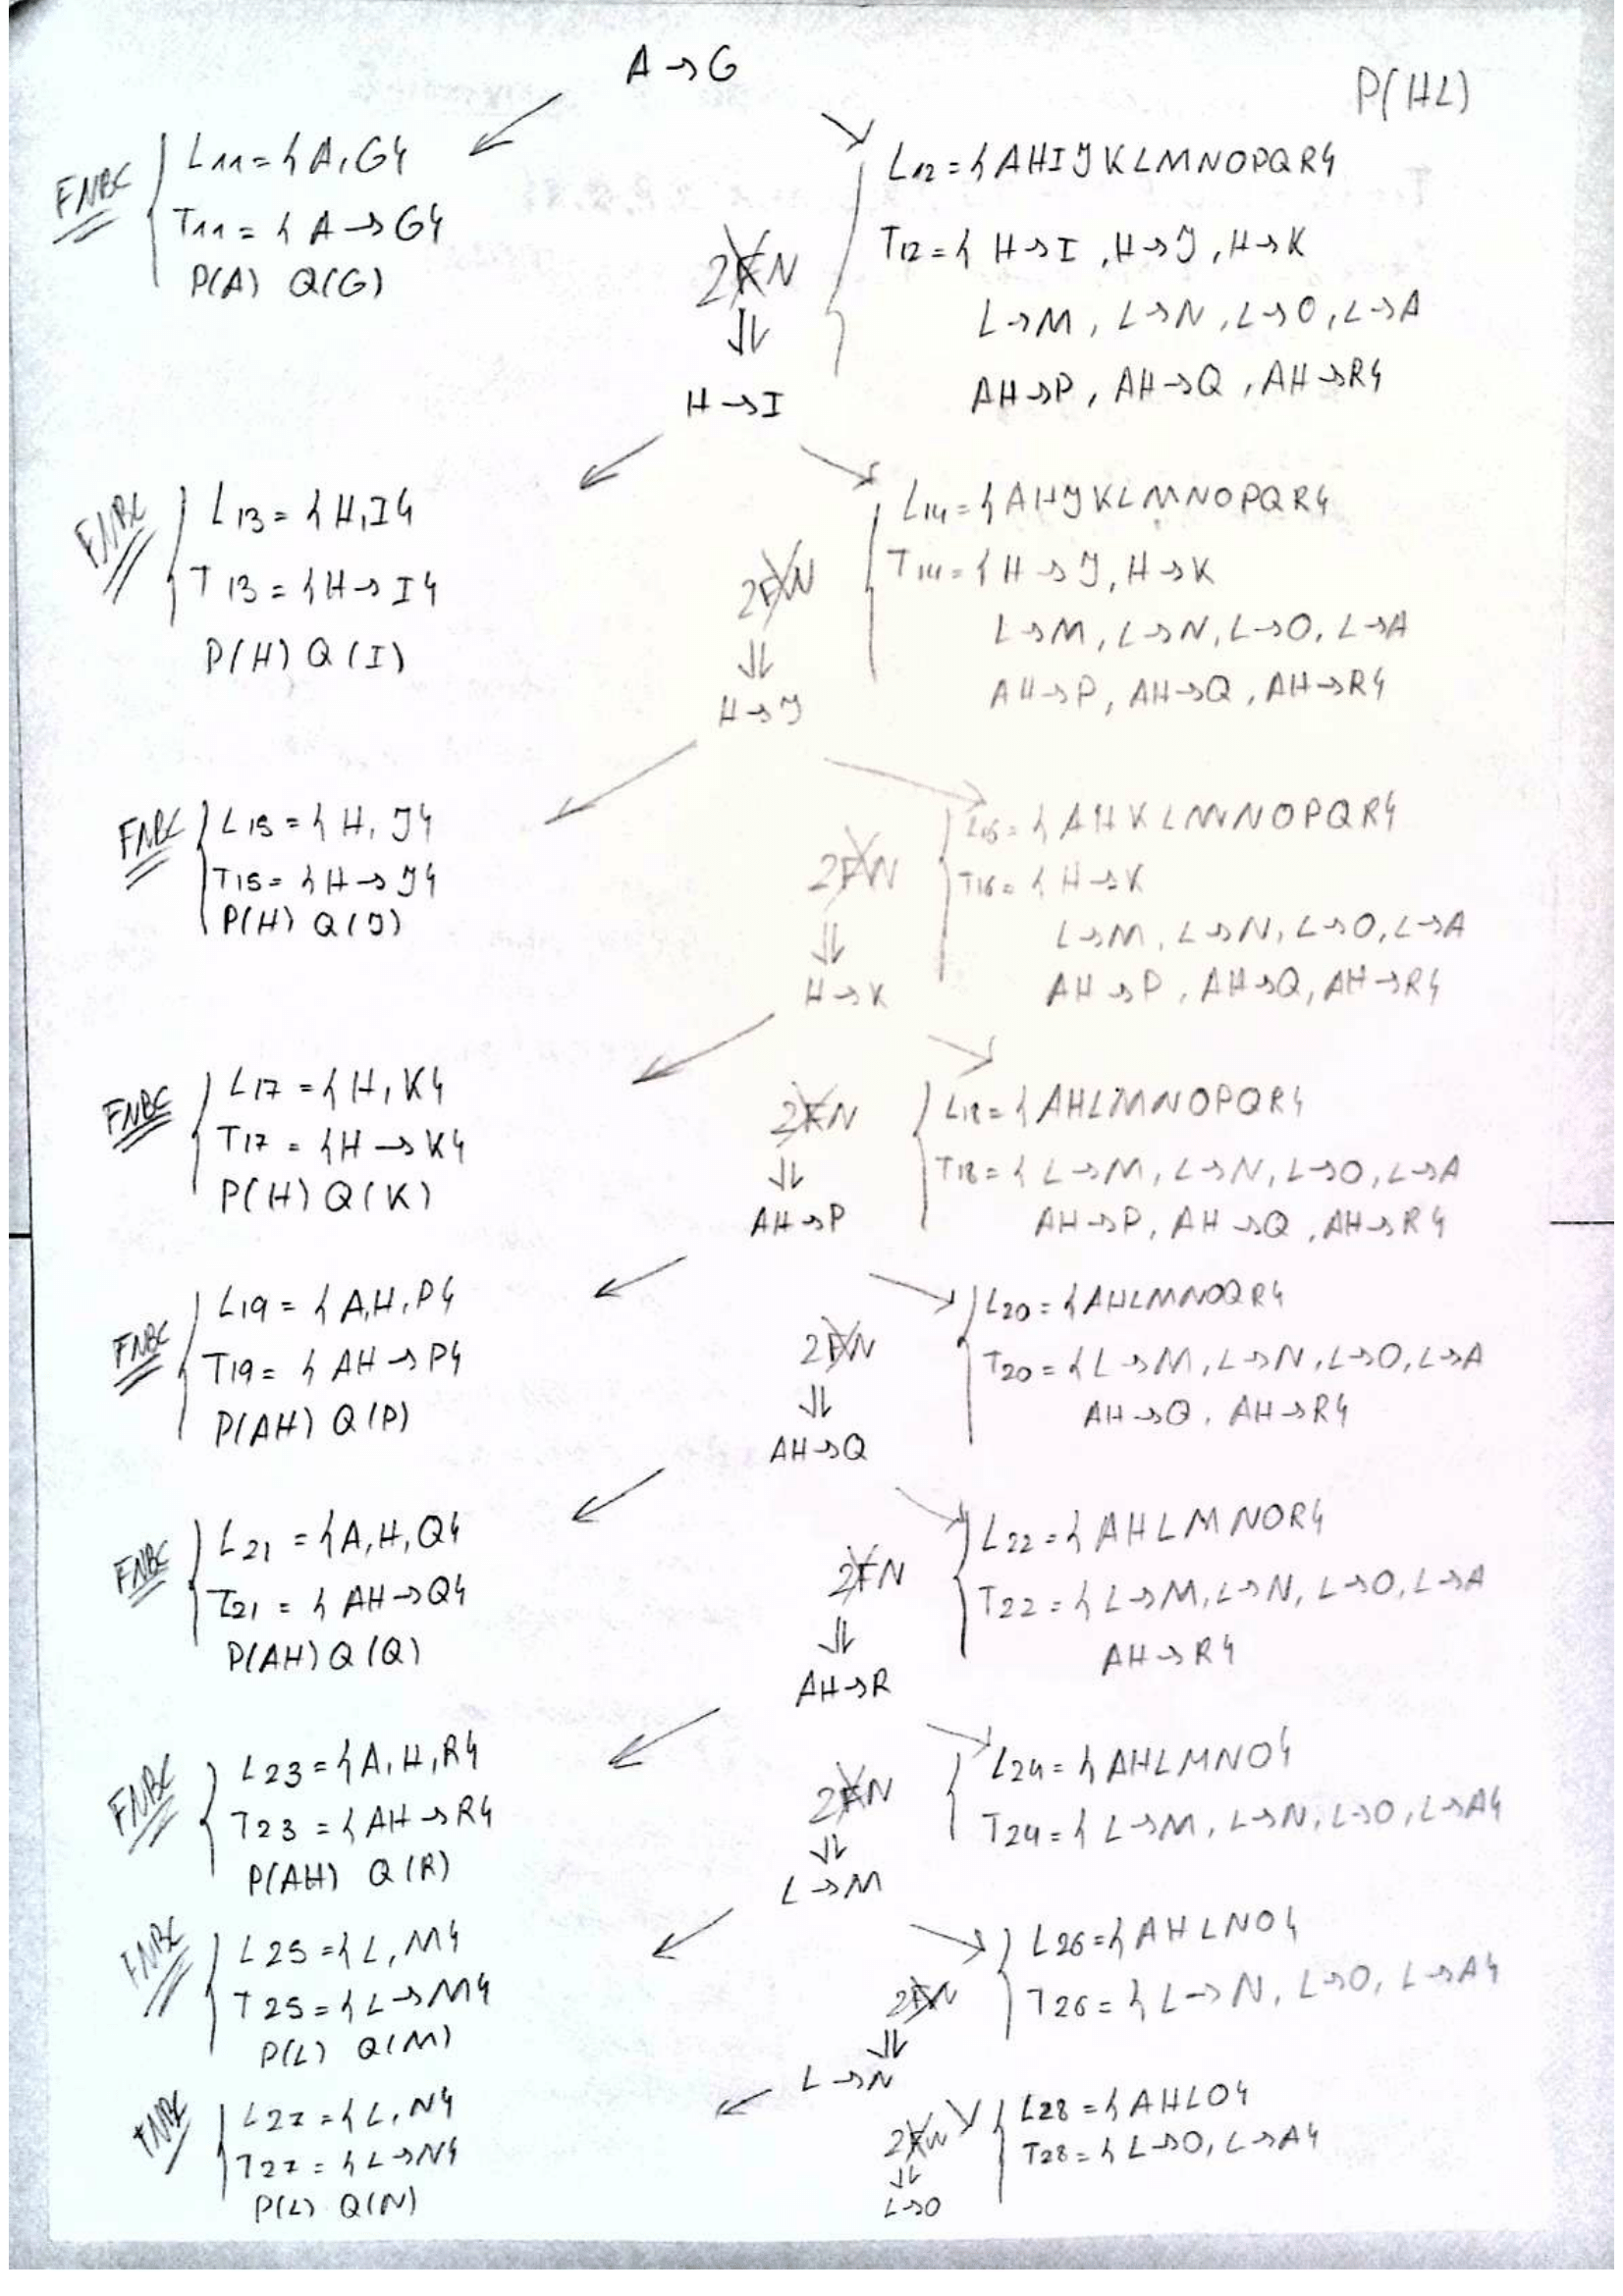 A → G
P(HL)
FNBC
L11 = {A, G}
T11 = {A → G}
P(A) Q(G)
L12 = {AHIJKLMNOPQR}
T12 = {H → I, H → J, H → K
L → M, L → N, L → O, L → A
AH → P, AH → Q, AH → R}
2FN
⇓
H → I
FNBC
L13 = {H, I}
T13 = {H → I}
P(H) Q(I)
L14 = {AHJKLMNOPQR}
T14 = {H → J, H → K
L → M, L → N, L → O, L → A
AH → P, AH → Q, AH → R}
2FN
⇓
H → J
FNBC
L15 = {H, J}
T15 = {H → J}
P(H) Q(J)
L16 = {AHKLMNOPQR}
T16 = {H → K
L → M, L → N, L → O, L → A
AH → P, AH → Q, AH → R}
2FN
⇓
H → K
FNBC
L17 = {H, K}
T17 = {H → K}
P(H) Q(K)
L18 = {AHLMNOPQR}
T18 = {L → M, L → N, L → O, L → A
AH → P, AH → Q, AH → R}
2FN
⇓
AH → P
FNBC
L19 = {A, H, P}
T19 = {AH → P}
P(AH) Q(P)
L20 = {AHLMNOQR}
T20 = {L → M, L → N, L → O, L → A
AH → Q, AH → R}
2FN
⇓
AH → Q
FNBC
L21 = {A, H, Q}
T21 = {AH → Q}
P(AH) Q(Q)
L22 = {AHLMNOR}
T22 = {L → M, L → N, L → O, L → A
AH → R}
2FN
⇓
AH → R
FNBC
L23 = {A, H, R}
T23 = {AH → R}
P(AH) Q(R)
L24 = {AHLMNO}
T24 = {L → M, L → N, L → O, L → A}
2FN
⇓
L → M
FNBC
L25 = {L, M}
T25 = {L → M}
P(L) Q(M)
L26 = {AHLNO}
T26 = {L → N, L → O, L → A}
2FN
⇓
L → N
FNBC
L27 = {L, N}
T27 = {L → N}
P(L) Q(N)
L28 = {AHLO}
T28 = {L → O, L → A}
2FN
⇓
L → O